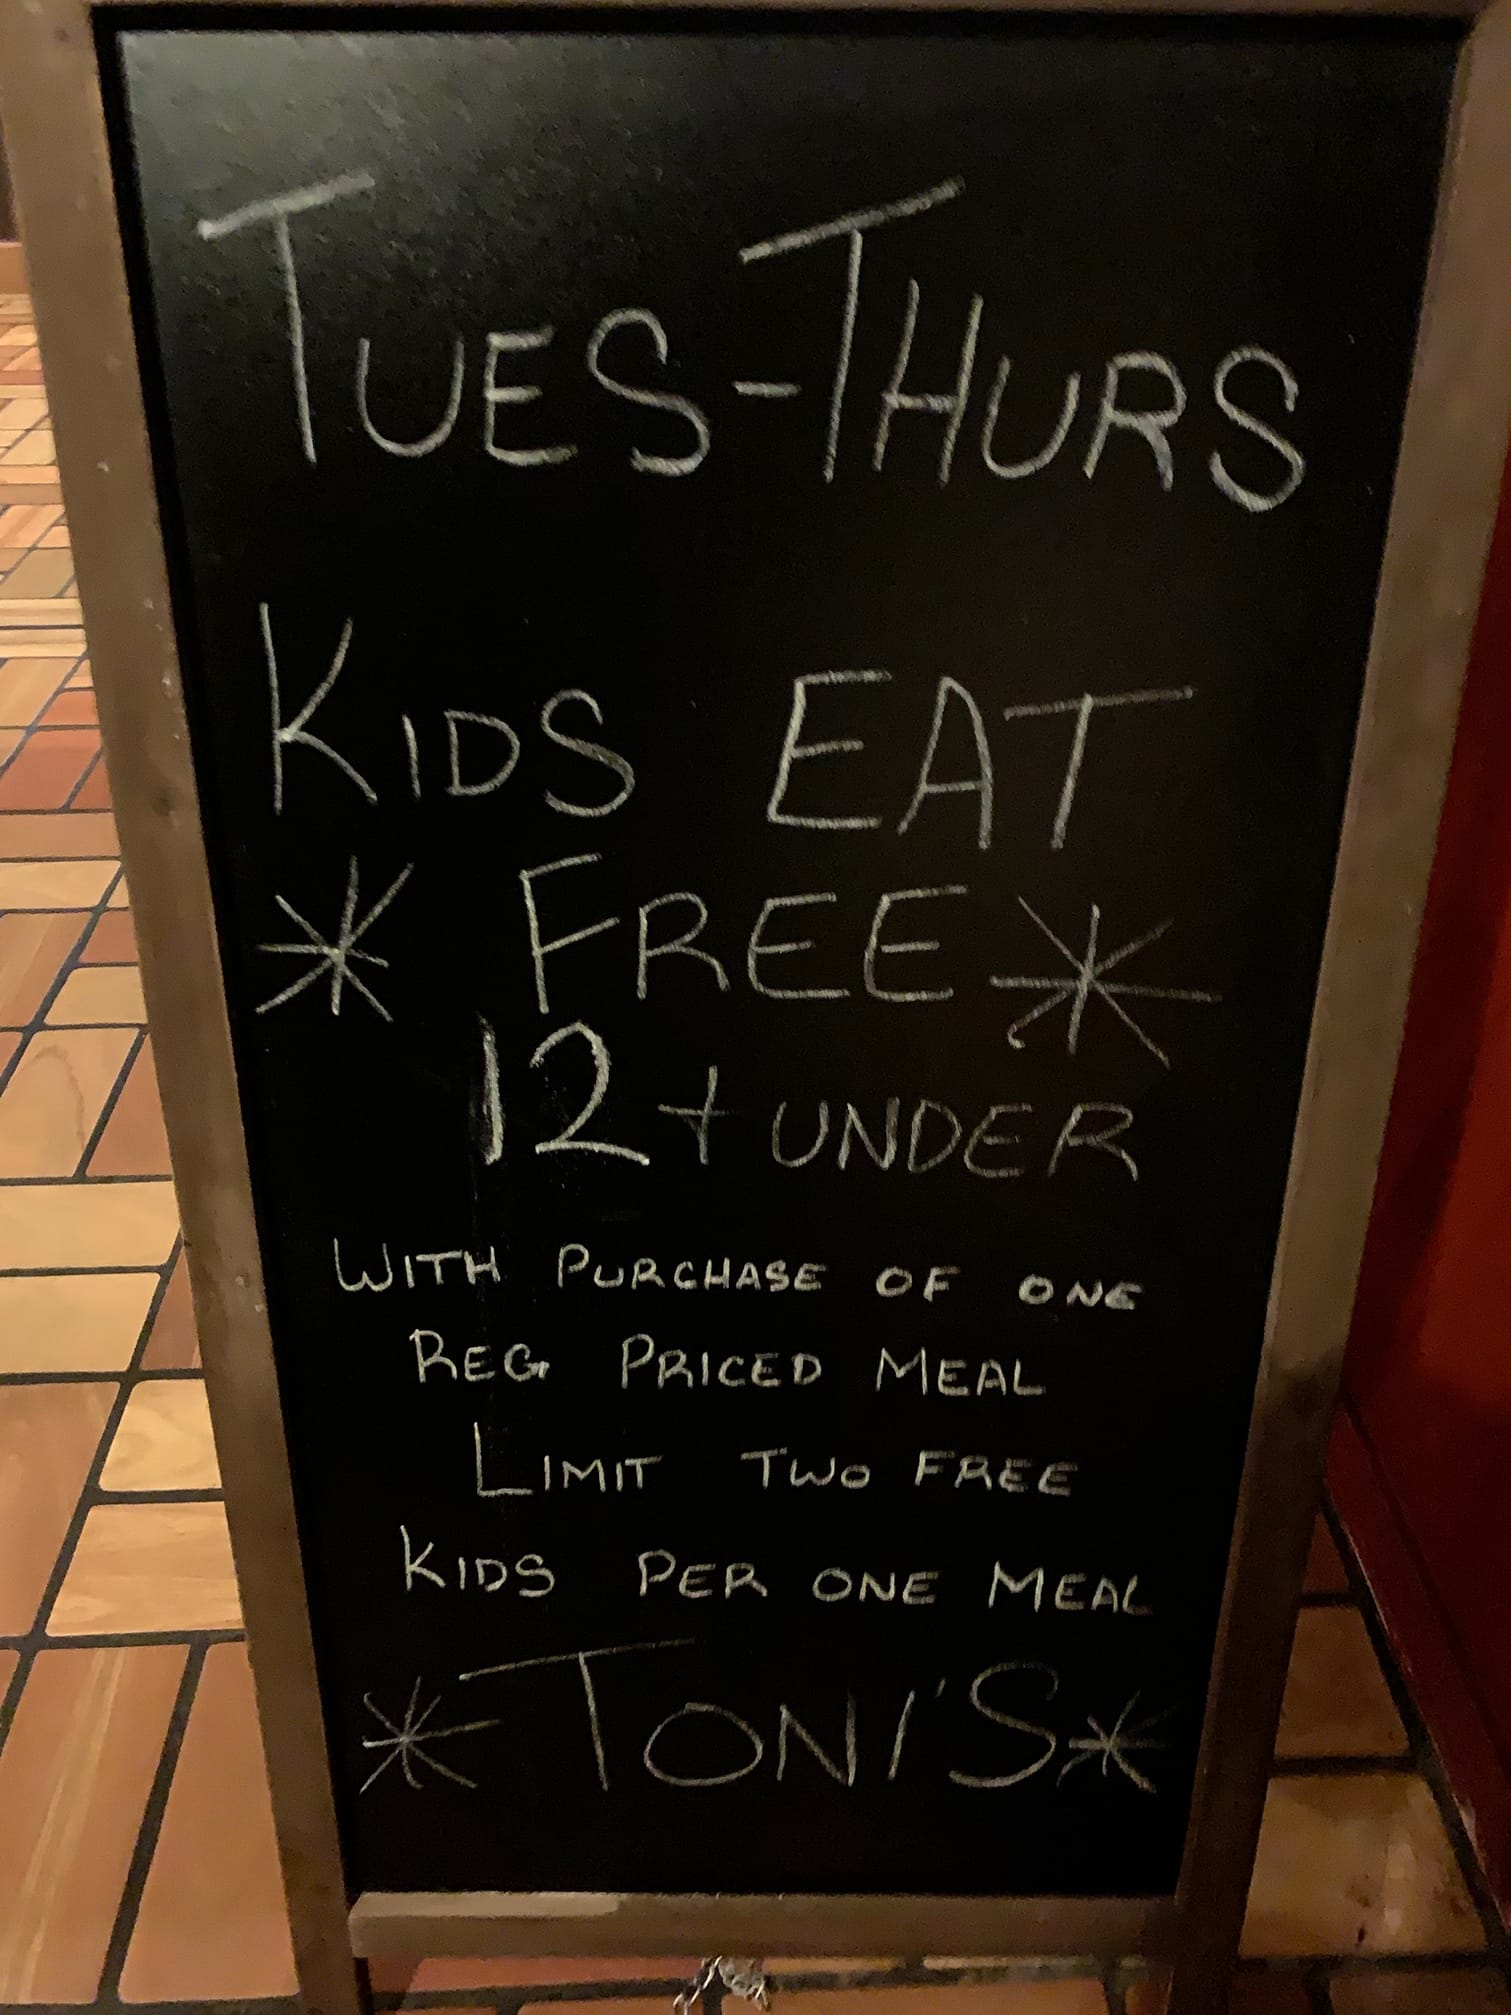 TUES-THURS
KIDS EAT
* FREE *
12 + UNDER
WITH PURCHASE OF ONE
REG PRICED MEAL
LIMIT TWO FREE
KIDS PER ONE MEAL
* TONI'S *